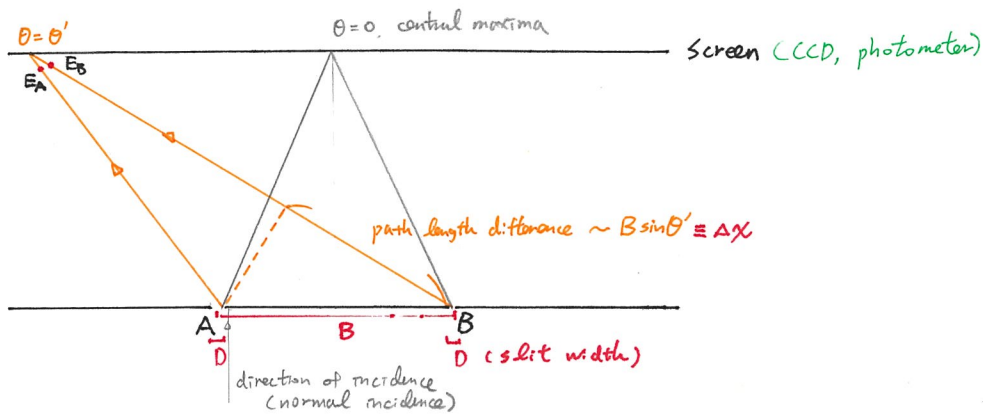 θ=0, central maxima
θ=θ'
Screen (CCD, photometer)
E_B
E_A
path length difference ~ B sinθ' ≡ Δx
A
B
B
D
D (slit width)
direction of incidence
(normal incidence)